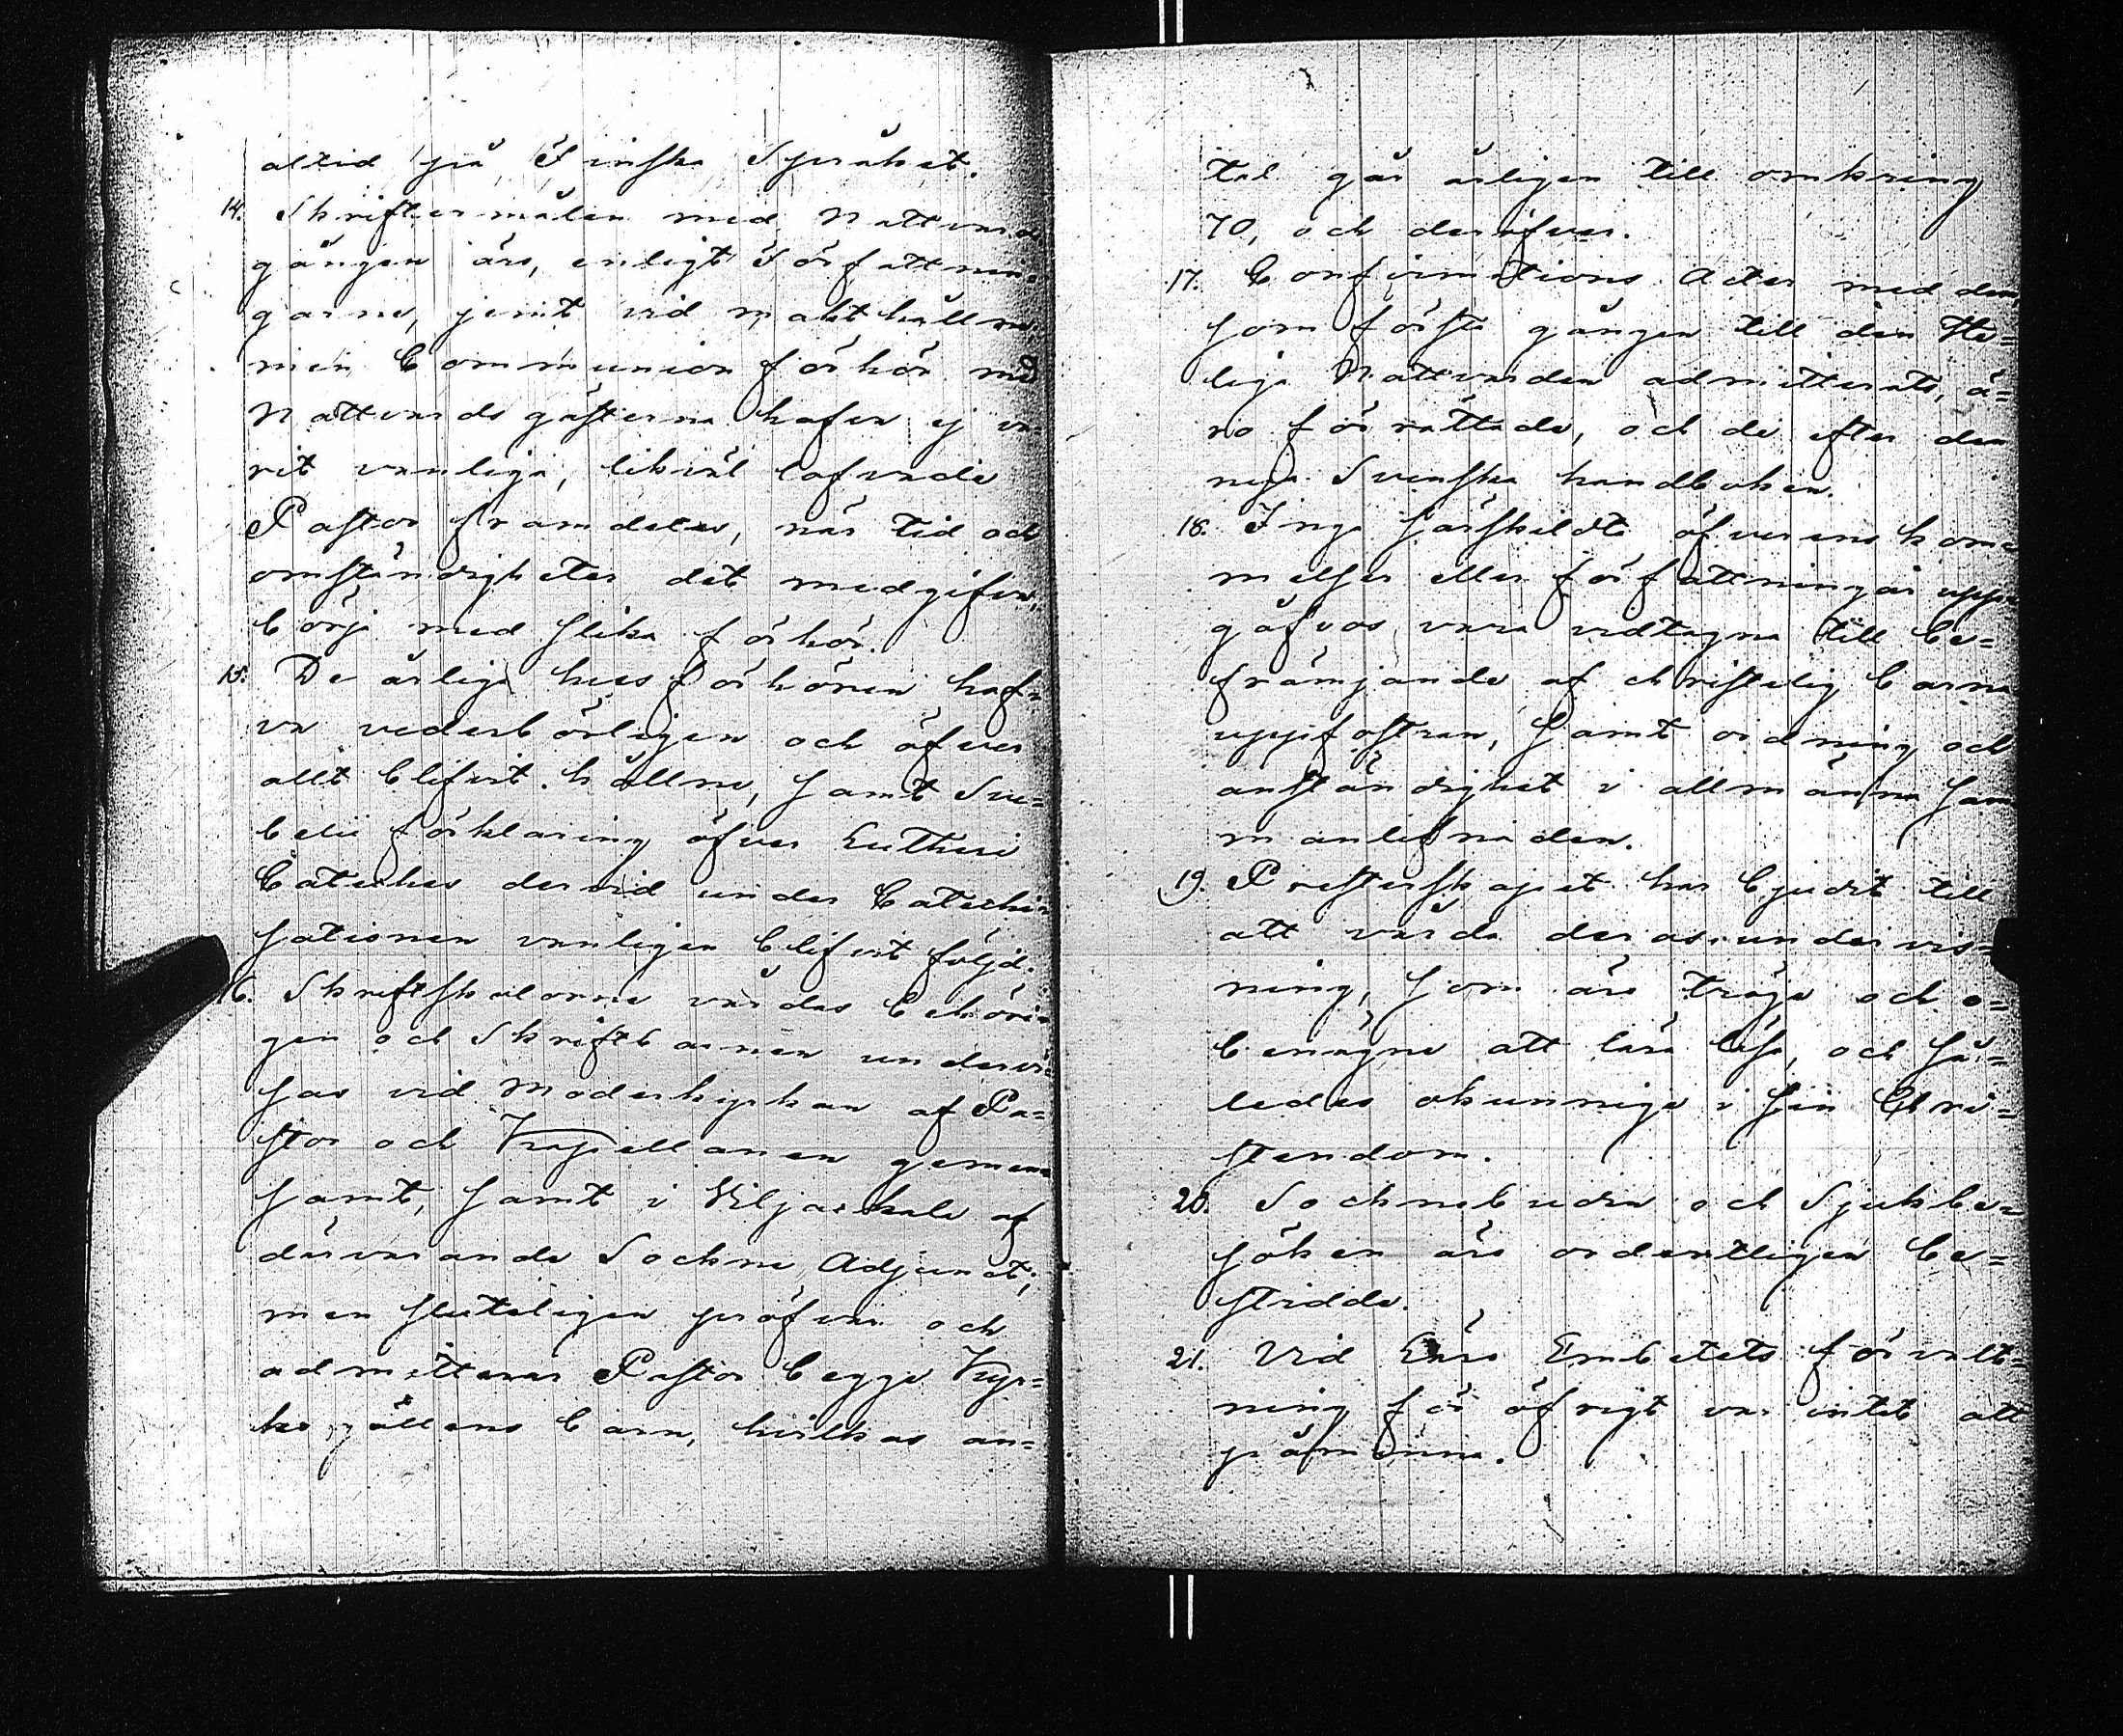 altid på Finska Språket.
14. Skriftermålen med Nattvards
gången äro, enligt Författnin-
garne, jemt vid makt hållne
men Communion förhör med
Nattvards gästerna hafva ej va-
rit vanliga, likväl lofvade
Pastor framdeles, när tid och
omständigheter det medgifva,
börja med slika förhör.
15. De årliga husförhören haf-
va vederbörligen och öfver
allt blifvit hållne, samt Sve-
belii förklaring öfver Lutheri
Cateches dervid under Catechi-
sationen vanligen blifvit följd.
16. Skriftskolorne vårdas behöri-
gen och Skriftbarnen undervi-
sas vid Moderkyrkan af Pa-
stor och Kapellanen gemen
samt, samt i Viljakkala af
därvarande Sockne Adjunct;
men sluteligen pröfvar och
admitterar Pastor begge Kyr-
ko gällens barn, hvilkas an-
tal går årligen till omkring
70, och deröfver.
17. Confirmations Acter med dem,
som första gången till den He-
liga Nattvarden admitterats, ä-
ro förrättade, och de efter den
nya Svenska handboken.
18. Inga särskildta öfverens kom-
melser eller författningar upp-
gåfvos vara vidtagna till be-
främjande af christelig barna
uppfostran, samt ordning och
anständighet i allmänna sam
manlefnaden.
19. Presterskapet har bjudit till
att vårda deras undervis-
ning, som äro tröga och o-
benägne att lära läsa, och så-
ledes okunniga i sin Chri-
stendom.
20. Socknebuden och Sjukbe-
söken äro ordentligen be-
stridde.
21. Vid Embetets förvalt-
ning för öfrigt var intet att
påminna.